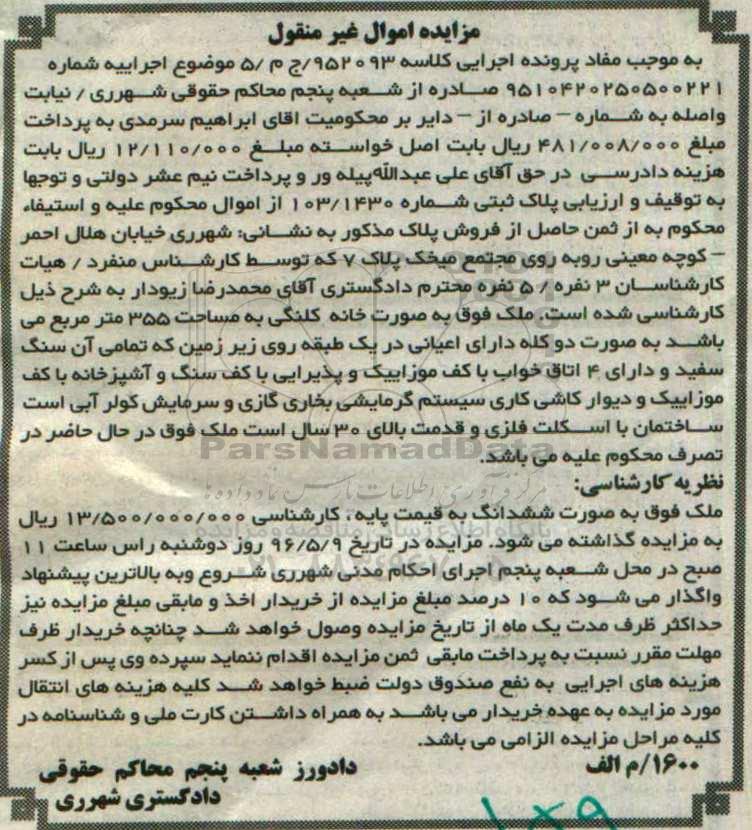 مزایده اموال غیر منقول
به موجب مفاد پرونده اجرایی کلاسه ۹۵۲۰۹۳/ج م /۵ موضوع اجراییه شماره
۹۵۱۰۴۲۰۲۵۰۵۰۰۲۲۱ صادره از شعبه پنجم محاکم حقوقی شهرری / نیابت
واصله به شماره – صادره از – دایر بر محکومیت اقای ابراهیم سرمدی به پرداخت
مبلغ ۴۸۱/۰۰۸/۰۰۰ ریال بابت اصل خواسته مبلغ ۱۲/۱۱۰/۰۰۰ ریال بابت
هزینه دادرسی در حق آقای علی عبداللهپیله ور و پرداخت نیم عشر دولتی و توجها
به توقیف و ارزیابی پلاک ثبتی شماره ۱۰۳/۱۴۳۰ از اموال محکوم علیه و استیفاء
محکوم به از ثمن حاصل از فروش پلاک مذکور به نشانی: شهرری خیابان هلال احمر
– کوچه معینی روبه روی مجتمع میخک پلاک ۷ که توسط کارشناس منفرد / هیات
کارشناسان ۳ نفره / ۵ نفره محترم دادگستری آقای محمدرضا زیودار به شرح ذیل
کارشناسی شده است. ملک فوق به صورت خانه کلنگی به مساحت ۳۵۵ متر مربع می
باشد به صورت دو کله دارای اعیانی در یک طبقه روی زیر زمین که تمامی آن سنگ
سفید و دارای ۴ اتاق خواب با کف موزاییک و پذیرایی با کف سنگ و آشپزخانه با کف
موزاییک و دیوار کاشی کاری سیستم گرمایشی بخاری گازی و سرمایش کولر آبی است
ساختمان با اسکلت فلزی و قدمت بالای ۳۰ سال است ملک فوق در حال حاضر در
تصرف محکوم علیه می باشد.
ParsNamadData
مرکز فرآوری اطلاعات پارس نماد داده ها
نظریه کارشناسی:
ملک فوق به صورت ششدانگ به قیمت پایه ، کارشناسی ۱۳/۵۰۰/۰۰۰/۰۰۰ ریال
به مزایده گذاشته می شود. مزایده در تاریخ ۹۶/۵/۹ روز دوشنبه راس ساعت ۱۱
صبح در محل شعبه پنجم اجرای احکام مدنی شهرری شروع وبه بالاترین پیشنهاد
واگذار می شود که ۱۰ درصد مبلغ مزایده از خریدار اخذ و مابقی مبلغ مزایده نیز
حداکثر ظرف مدت یک ماه از تاریخ مزایده وصول خواهد شد چنانچه خریدار ظرف
مهلت مقرر نسبت به پرداخت مابقی ثمن مزایده اقدام ننماید سپرده وی پس از کسر
هزینه های اجرایی به نفع صندوق دولت ضبط خواهد شد کلیه هزینه های انتقال
مورد مزایده به عهده خریدار می باشد به همراه داشتن کارت ملی و شناسنامه در
کلیه مراحل مزایده الزامی می باشد.
۱۶۰۰/م الف
دادورز شعبه پنجم محاکم حقوقی
دادگستری شهرری
۱×۹